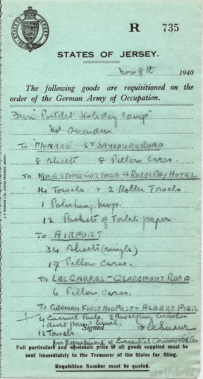 R 735
STATES OF JERSEY.
Nov 8th 1940
The following goods are requisitioned on the
order of the German Army of Occupation.
From Portelet Holiday Camp
To "Monaco" St Saviours Road
8 Sheets 8 Pillow Cases.
To Milestone Cottage & Hotel
14 Towels + 2 Roller Towels
1 Polishing Mop.
12 Packets of Toilet paper
To Airport
34 Sheets (single)
17 Pillow Cases.
To Les Carres - Claremont Road
6 Pillow Cases.
To German First Aid Post - Albert Pier
4
12 Towels
Signed
Full particulars and wholesale price of all goods supplied must be
sent immediately to the Treasurer of the States for filing.
Requisition Number must be quoted.